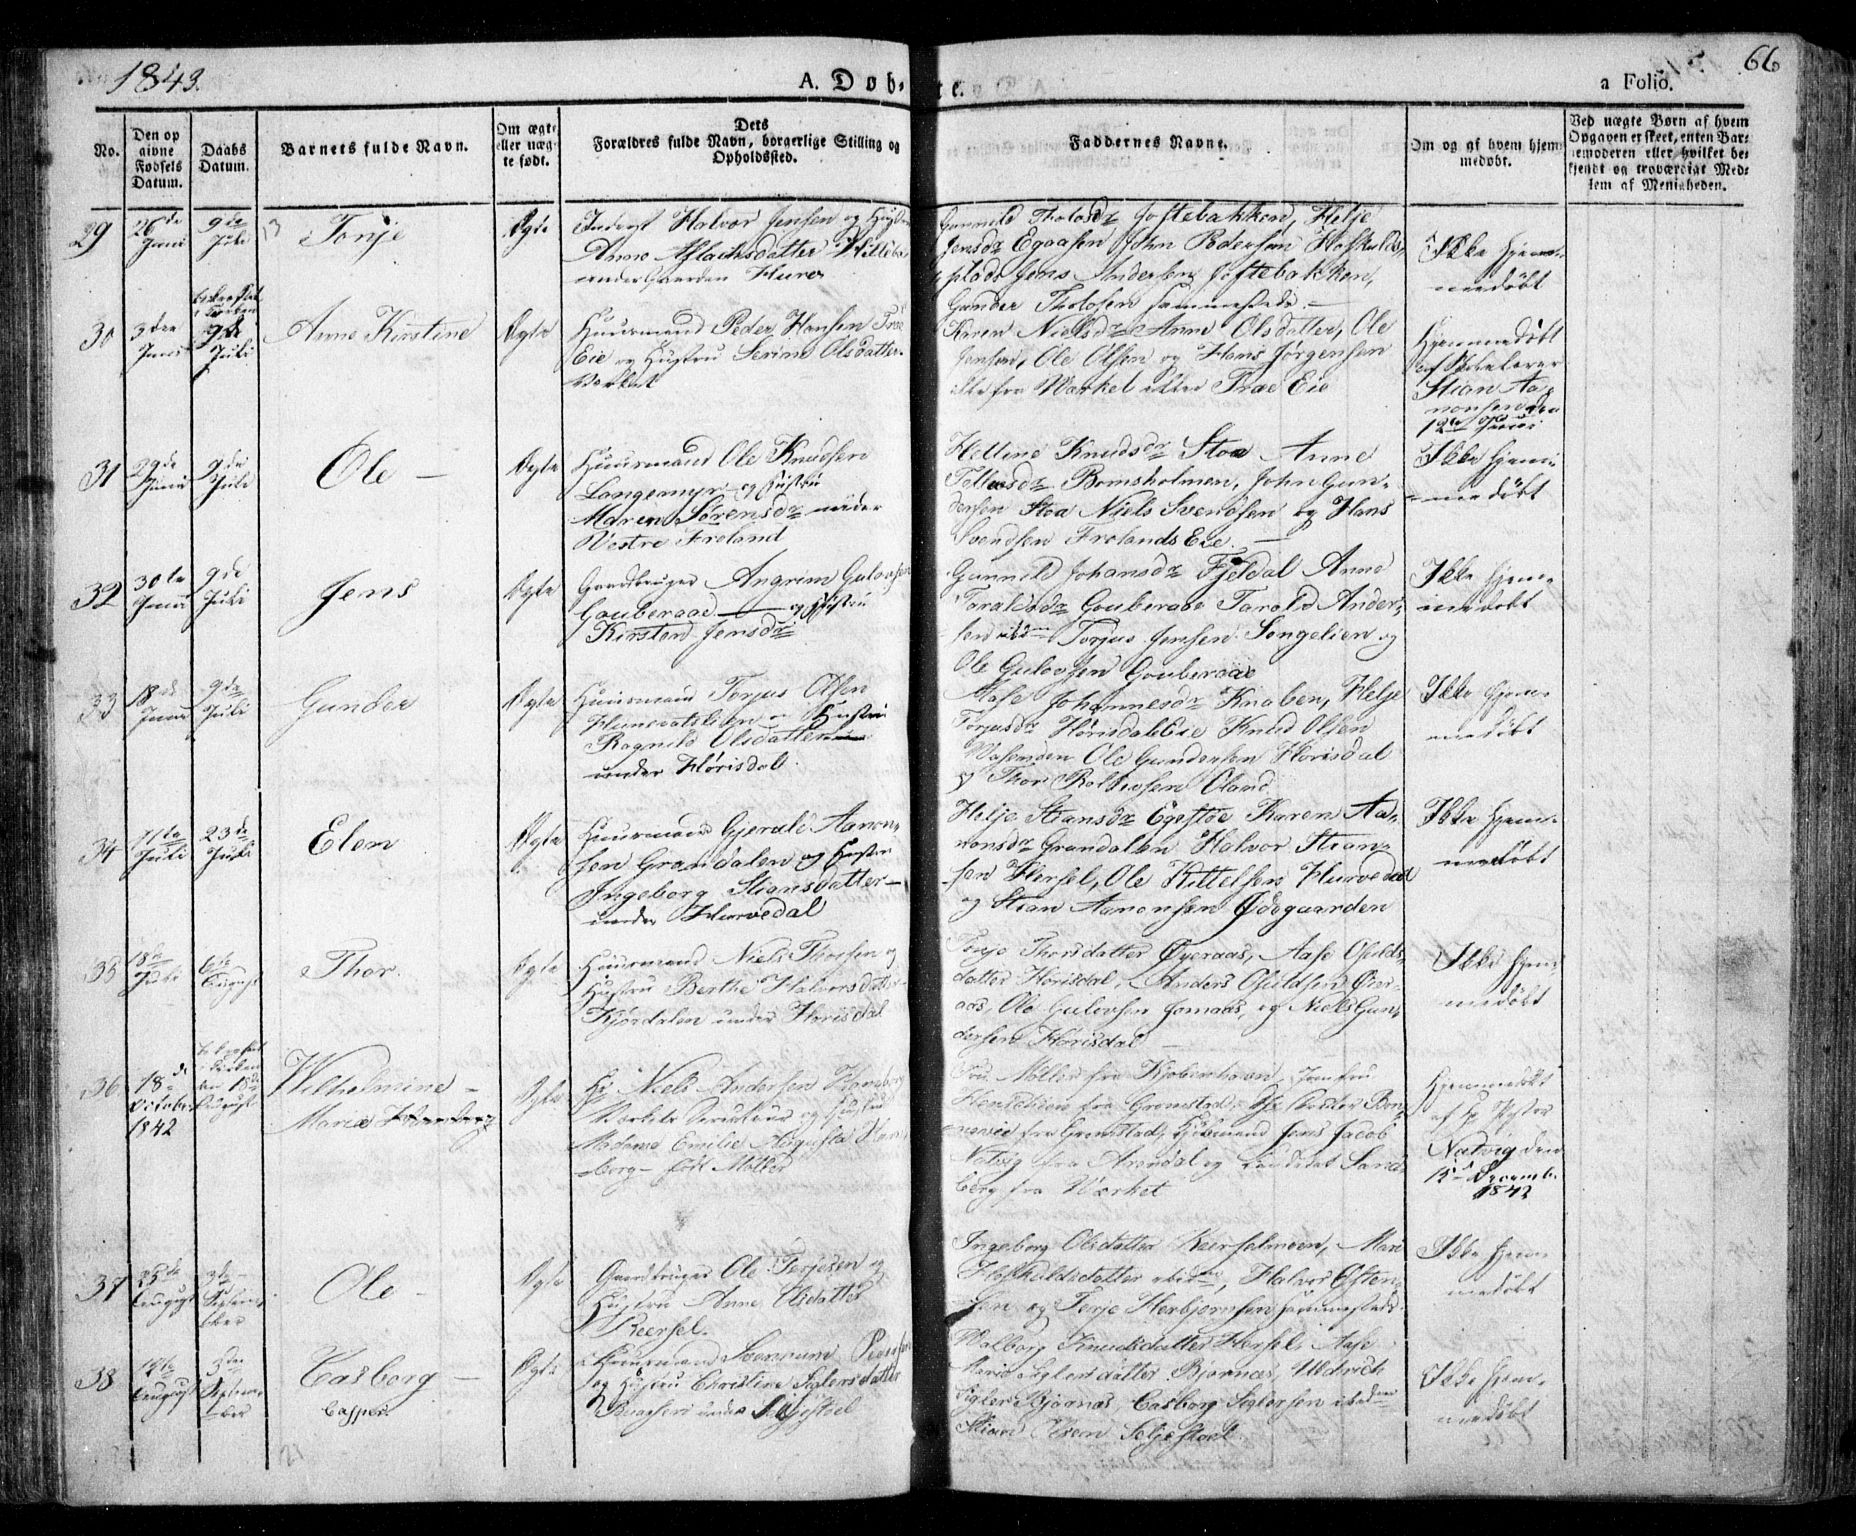 1843.
A. Døb-
te.
a Folio.
66
No.
Den op
givne
Fødsels
Datum.
Daabs
Datum.
Barnets fulde Navn.
Om ægte
eller uæg-
te født.
Dets
Forældres fulde Navn, borgerlige Stilling og
Opholdssted.
Faddernes Navne.
Om og af hvem hjem-
medøbt.
Ved uægte Børn af hvem
Opgaven er skeet, enten Bar-
nemoderen eller hvilket be-
kjendt og troværdigt Med-
lem af Menigheden.
29
26de
Juni
9de
Juli
Tonje
Ægte
Halvor Jensen og
Anne Aslachsdatter
under Gaarden
Gunnild Tholosdr Jostebakken, Helje
Jensdr Egaasen John Pedersen
Jens Andersen Jostebakken,
Gunder Tholosen sammestede. —
Ikke hjem-
medøbt
30
3die
Juni
9de
Juli
Anne Kirstine
Ægte
Huusmand Peder Hansen Træ
Eie og Hustru Serine Olsdatter
Værket
Karen Nielsdr Anne Olsdatter, Ole
Jensen, Ole Olsen og Hans Jørgensen
alle fra Værket eller Træ Eie
Hjemmedøbt
af Skolelærer
Stian Aa-
nonsen den
12te Juni
31
29de
Juni
9de
Juli
Ole —
Ægte
Huusmand Ole Knudsen
Langemyr og Hustru
Maren Sørensdr under
Vestre Froland
Helline Knudsdr Stoa Anne
Tellevsdr Bomsholmen, John Gun-
dersen Stoa Niels Svendsen og Hans
Svendsen Frolands Eie. —
Ikke hjem-
medøbt
32
30te
Juni
9de
Juli
Jens
Ægte
Gaardbruger Angrim Gulovsen
Gouberaae — og Hustru
Kirsten Jensdr
Gunnild Johansdr Fjeldal Anne
Taraldsdr Gouberaae Tarald Ander-
sen ibdm Torjus Jensen Songelien og
Ole Gulovsen Gouberaae
Ikke hjem-
medøbt
33
18de
Juni
9de
Juli
Gunder
Ægte
Huusmand Torjus Olsen
og Hustru
Ragnild Olsdatter
under Hørisdal.
Aase Johannesdr Knaben, Helje
Torjusdr Hørisdal Eie Knud Olsen
Vasenden Ole Gundersen Hørisdal
og Thor Rollevsen Oland
Ikke hjem-
medøbt
34
11te
Juli
23de
Juli
Elen
Ægte
Huusmand Gjerulf Aanon-
sen Grandalen og Hustru
Ingeborg Stiansdatter —
under Hurvedal
Helje Stiansdr Egestøe Karen Aa-
nonsdr Grandalen Halvor Stian-
sen Hersel, Ole Kittelsen Hurvedal
og Stian Aanonsen Ødegaarden
Ikke hjem-
medøbt
35
18de
Juli
6te
August
Thor.
Ægte
Huusmand Niels Thorsen og
Hustru Berthe Halvorsdatter
Kjørdalen under Hørisdal
Tonje Thorsdatter Øyeraas, Aase Osulds-
datter Hørisdal, Anders Osuldsen Øier-
aas, Ole Gulovsen Jomaas, og Niels Gun-
dersen Hørisdal —
Ikke hjem-
medøbt
36
18de
October
1842
den 18de
August
Wilhelmine —
Marie
Ægte
Hr Niels Andersen
og Hustru
Madame Emilie Augusta
-borg — født Møller
Møller fra Kjøbenhavn, Jomfru
Henschien fra Grimstad,
fra Grimstad, Jens Jacob
Natvig fra Arendal og
berg fra Værket
Hjemmedøbt
af
Natvig den
Decemb.
1842
37
25de
August
3de
Septem-
ber
Ole —
Ægte
Gaardbruger Ole Terjesen og
Hustru Anne Olsdatter
Reersel.
Ingeborg Olsdatter Reerselmoen, Mari
Hoskuldsdatter ibidem, Halvor Østen-
sen og Terje Herbjørnsen sammestede.
Ikke hjem-
medøbt
38
August
3die
Septem-
ber
Casborg —
Casper.
Ægte
Huusmand
og Hustru Christine Siglersdatter
under
Walborg Knudsdatter Hersel, Aase
Marie Siglersdatter Bjørnæs, Uldrich
Sigler Bjørnæs Casborg Siglersen ibidem
Stian
Ikke hjem-
medøbt